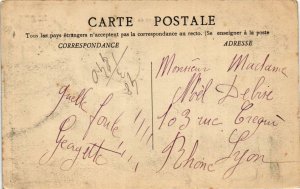 CARTE POSTALE
Tous les pays étrangers n'acceptent pas la correspondance au recto. (Se renseigner à la poste
CORRESPONDANCE
ADRESSE
Quelle
foule !!!
Georgette !!
Monsieur Madame
Noël Delive
103 rue Crequi
Lyon
Rhône